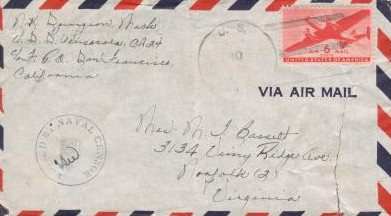 U.S.S. Pensacola, CA24
San Francisco,
California
U. S.
AIR 6¢ MAIL
UNITED STATES OF AMERICA
VIA AIR MAIL
NAVAL CENSOR
Mrs M. J. Bassett
3134 Vimy Ridge Ave
Norfolk
Virginia